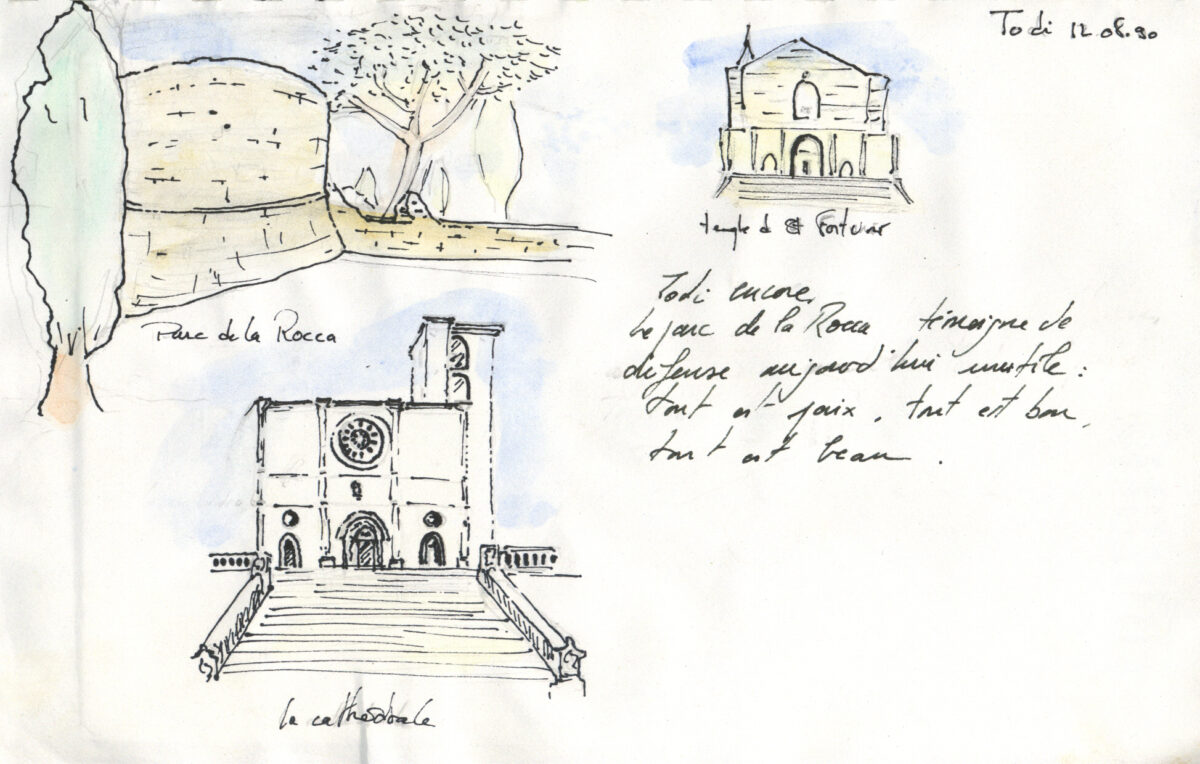 Todi 12.08.90
temple d St Fortunat
Parc de la Rocca
Todi encore.
Le parc de la Rocca témoigne de
défense aujourd'hui inutile :
tout est paix, tout est bon,
tout est beau.
la cathédrale